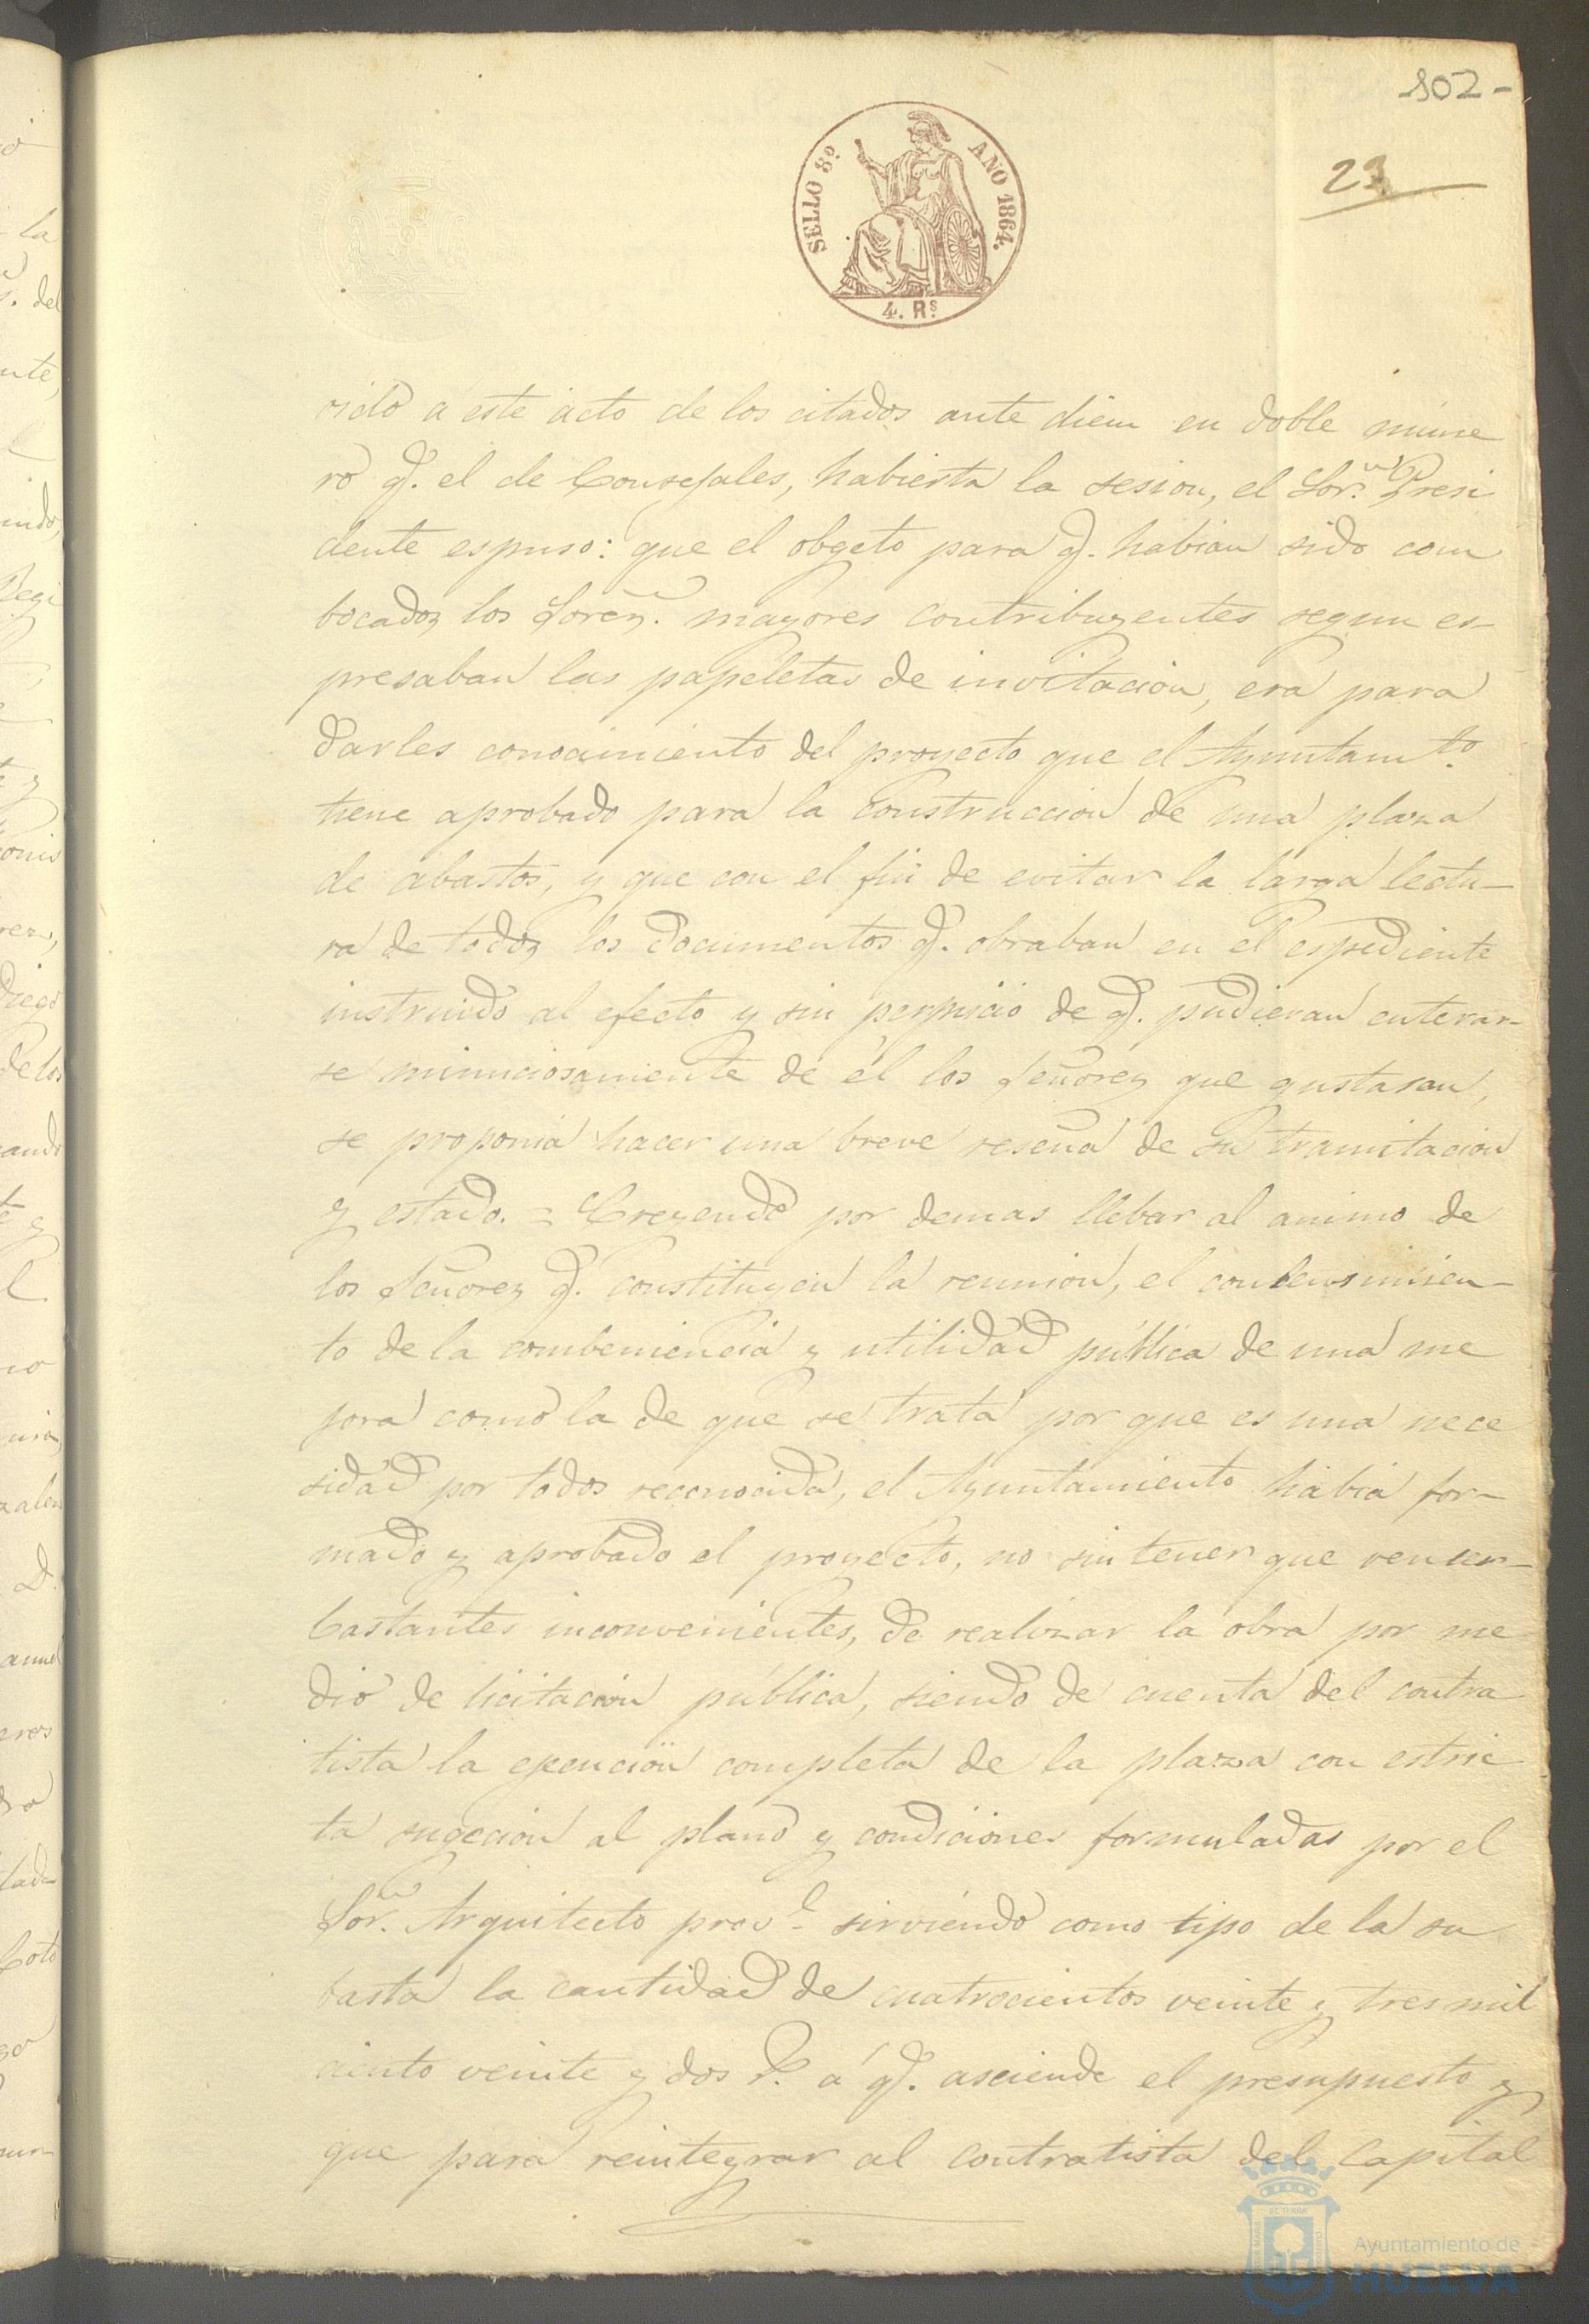 102-
23
SELLO 8º AÑO 1864.
4. Rs
rido a este acto de los citados ante diem en doble nume
ro q. el de Consejales, habierta la sesion, el Sor. Presi
dente espuso: que el obgeto para q. habian sido com
bocados los Sores. mayores contribuyentes segun es-
presaban las papeletas de invitacion, era para
darles conocimiento del proyecto que el Ayuntamto.
tiene aprobado para la construccion de una plaza
de abastos, y que con el fin de evitar la larga lectu-
ra de todos los documentos q. obraban en el espediente
instruido al efecto y sin perjuicio de q. pudieran enterar-
se minuciosamente de él los Señores que gustasen,
se proponia hacer una breve reseña de su tramitacion
y estado. = Creyendo por demas llebar al animo de
los Señores q. constituyen la reunion, el conbensimien-
to de la combeniencia y utilidad pública de una me
jora como la de que se trata por que es una nece
sidad por todos reconocida, el Ayuntamiento habia for-
mado y aprobado el proyecto, no sin tener que vencer-
bastantes inconvenientes, de realizar la obra por me
dio de licitacion pública, siendo de cuenta del contra
tista la ejecucion completa de la plaza con estric
ta sugecion al plano y condiciones formuladas por el
Sor. Arquitecto provl. sirviendo como tipo de la su
basta la cantidad de cuatrocientos veinte y tres mil
ciento veinte y dos r. á q. asciende el presupuesto y
que para reintegrar al contratista del capital
Ayuntamiento de
HUELVA